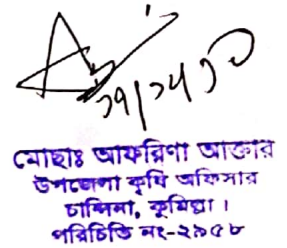 মোছাঃ আফরিণা আক্তার
উপজেলা কৃষি অফিসার
চান্দিনা, কুমিল্লা।
পরিচিতি নং-২৯৫৮